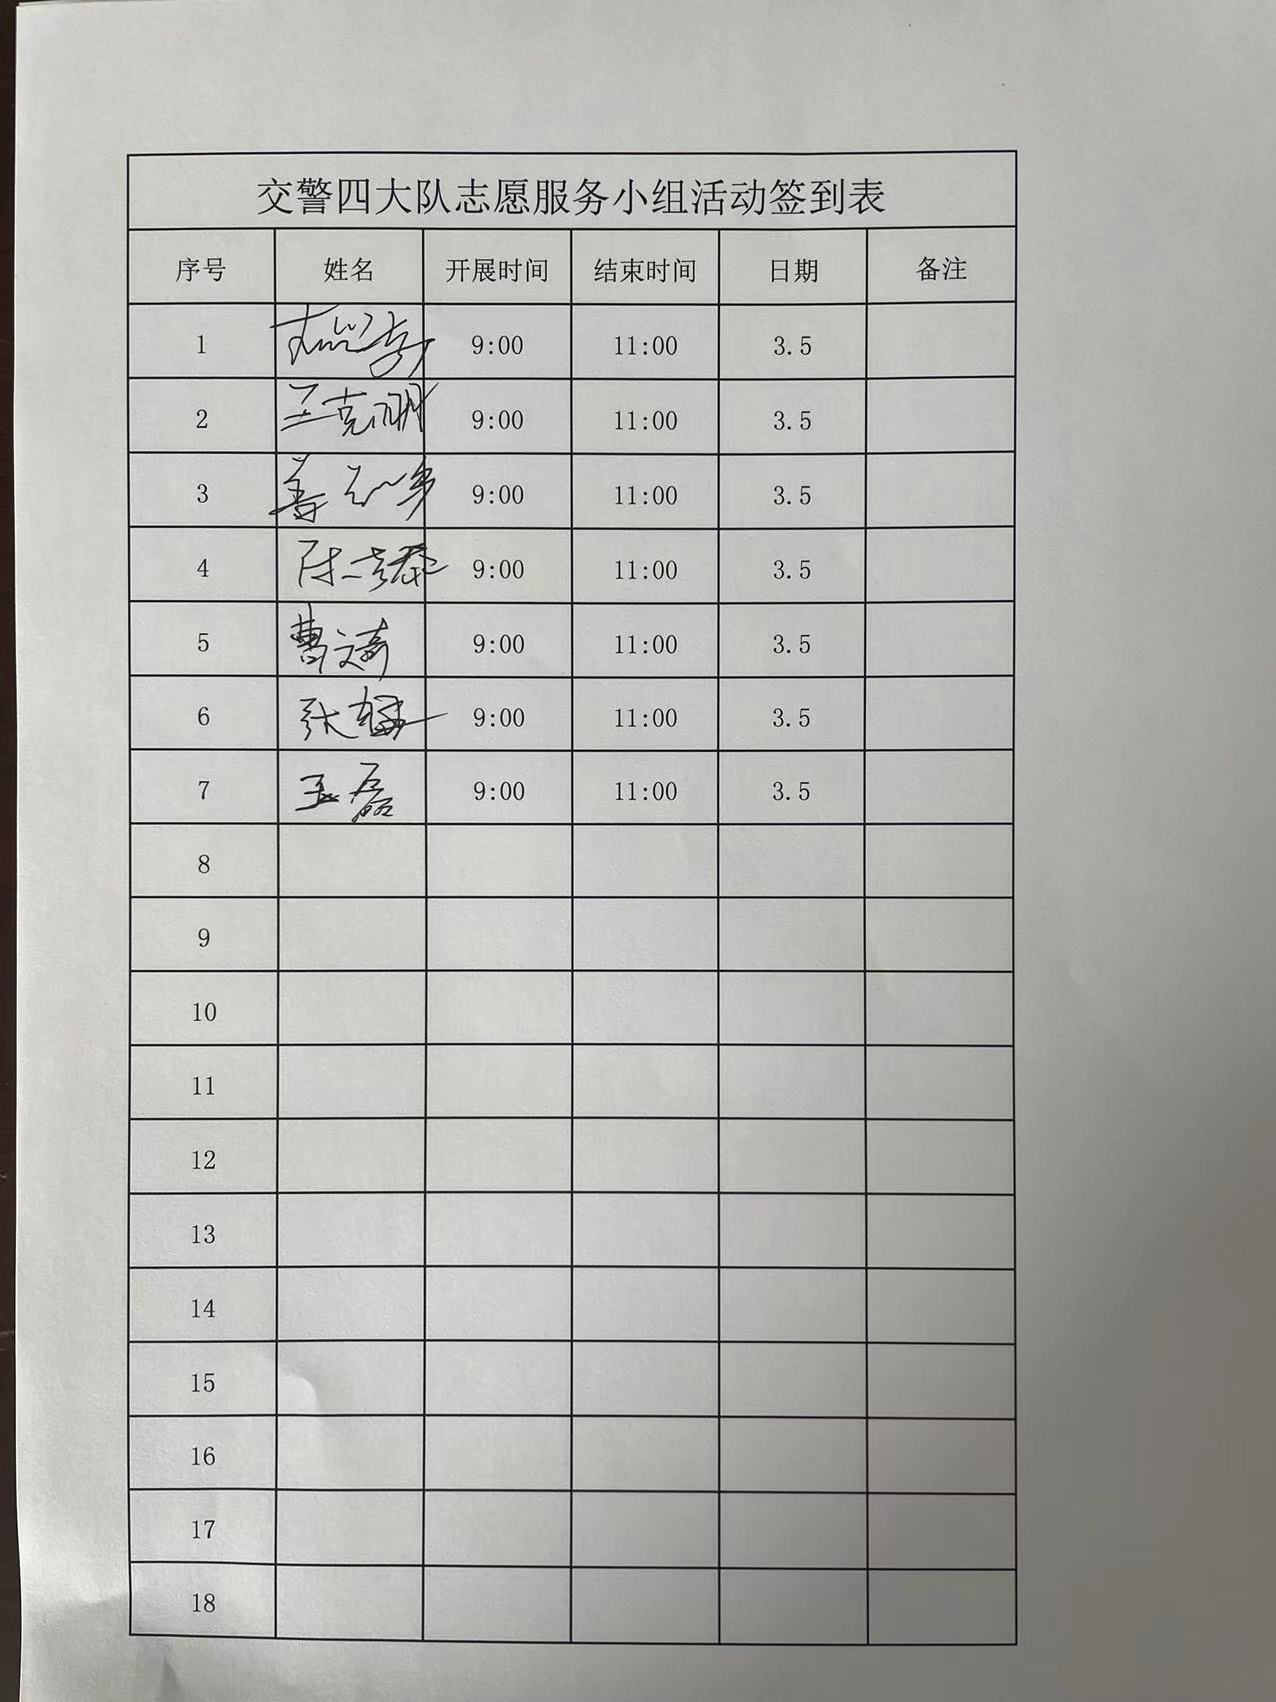 交警四大队志愿服务小组活动签到表
序号 姓名 开展时间 结束时间 日期 备注
1 9:00 11:00 3.5
2 王克明 9:00 11:00 3.5
3 9:00 11:00 3.5
4 9:00 11:00 3.5
5 曹文奇 9:00 11:00 3.5
6 张 9:00 11:00 3.5
7 王磊 9:00 11:00 3.5
8
9
10
11
12
13
14
15
16
17
18